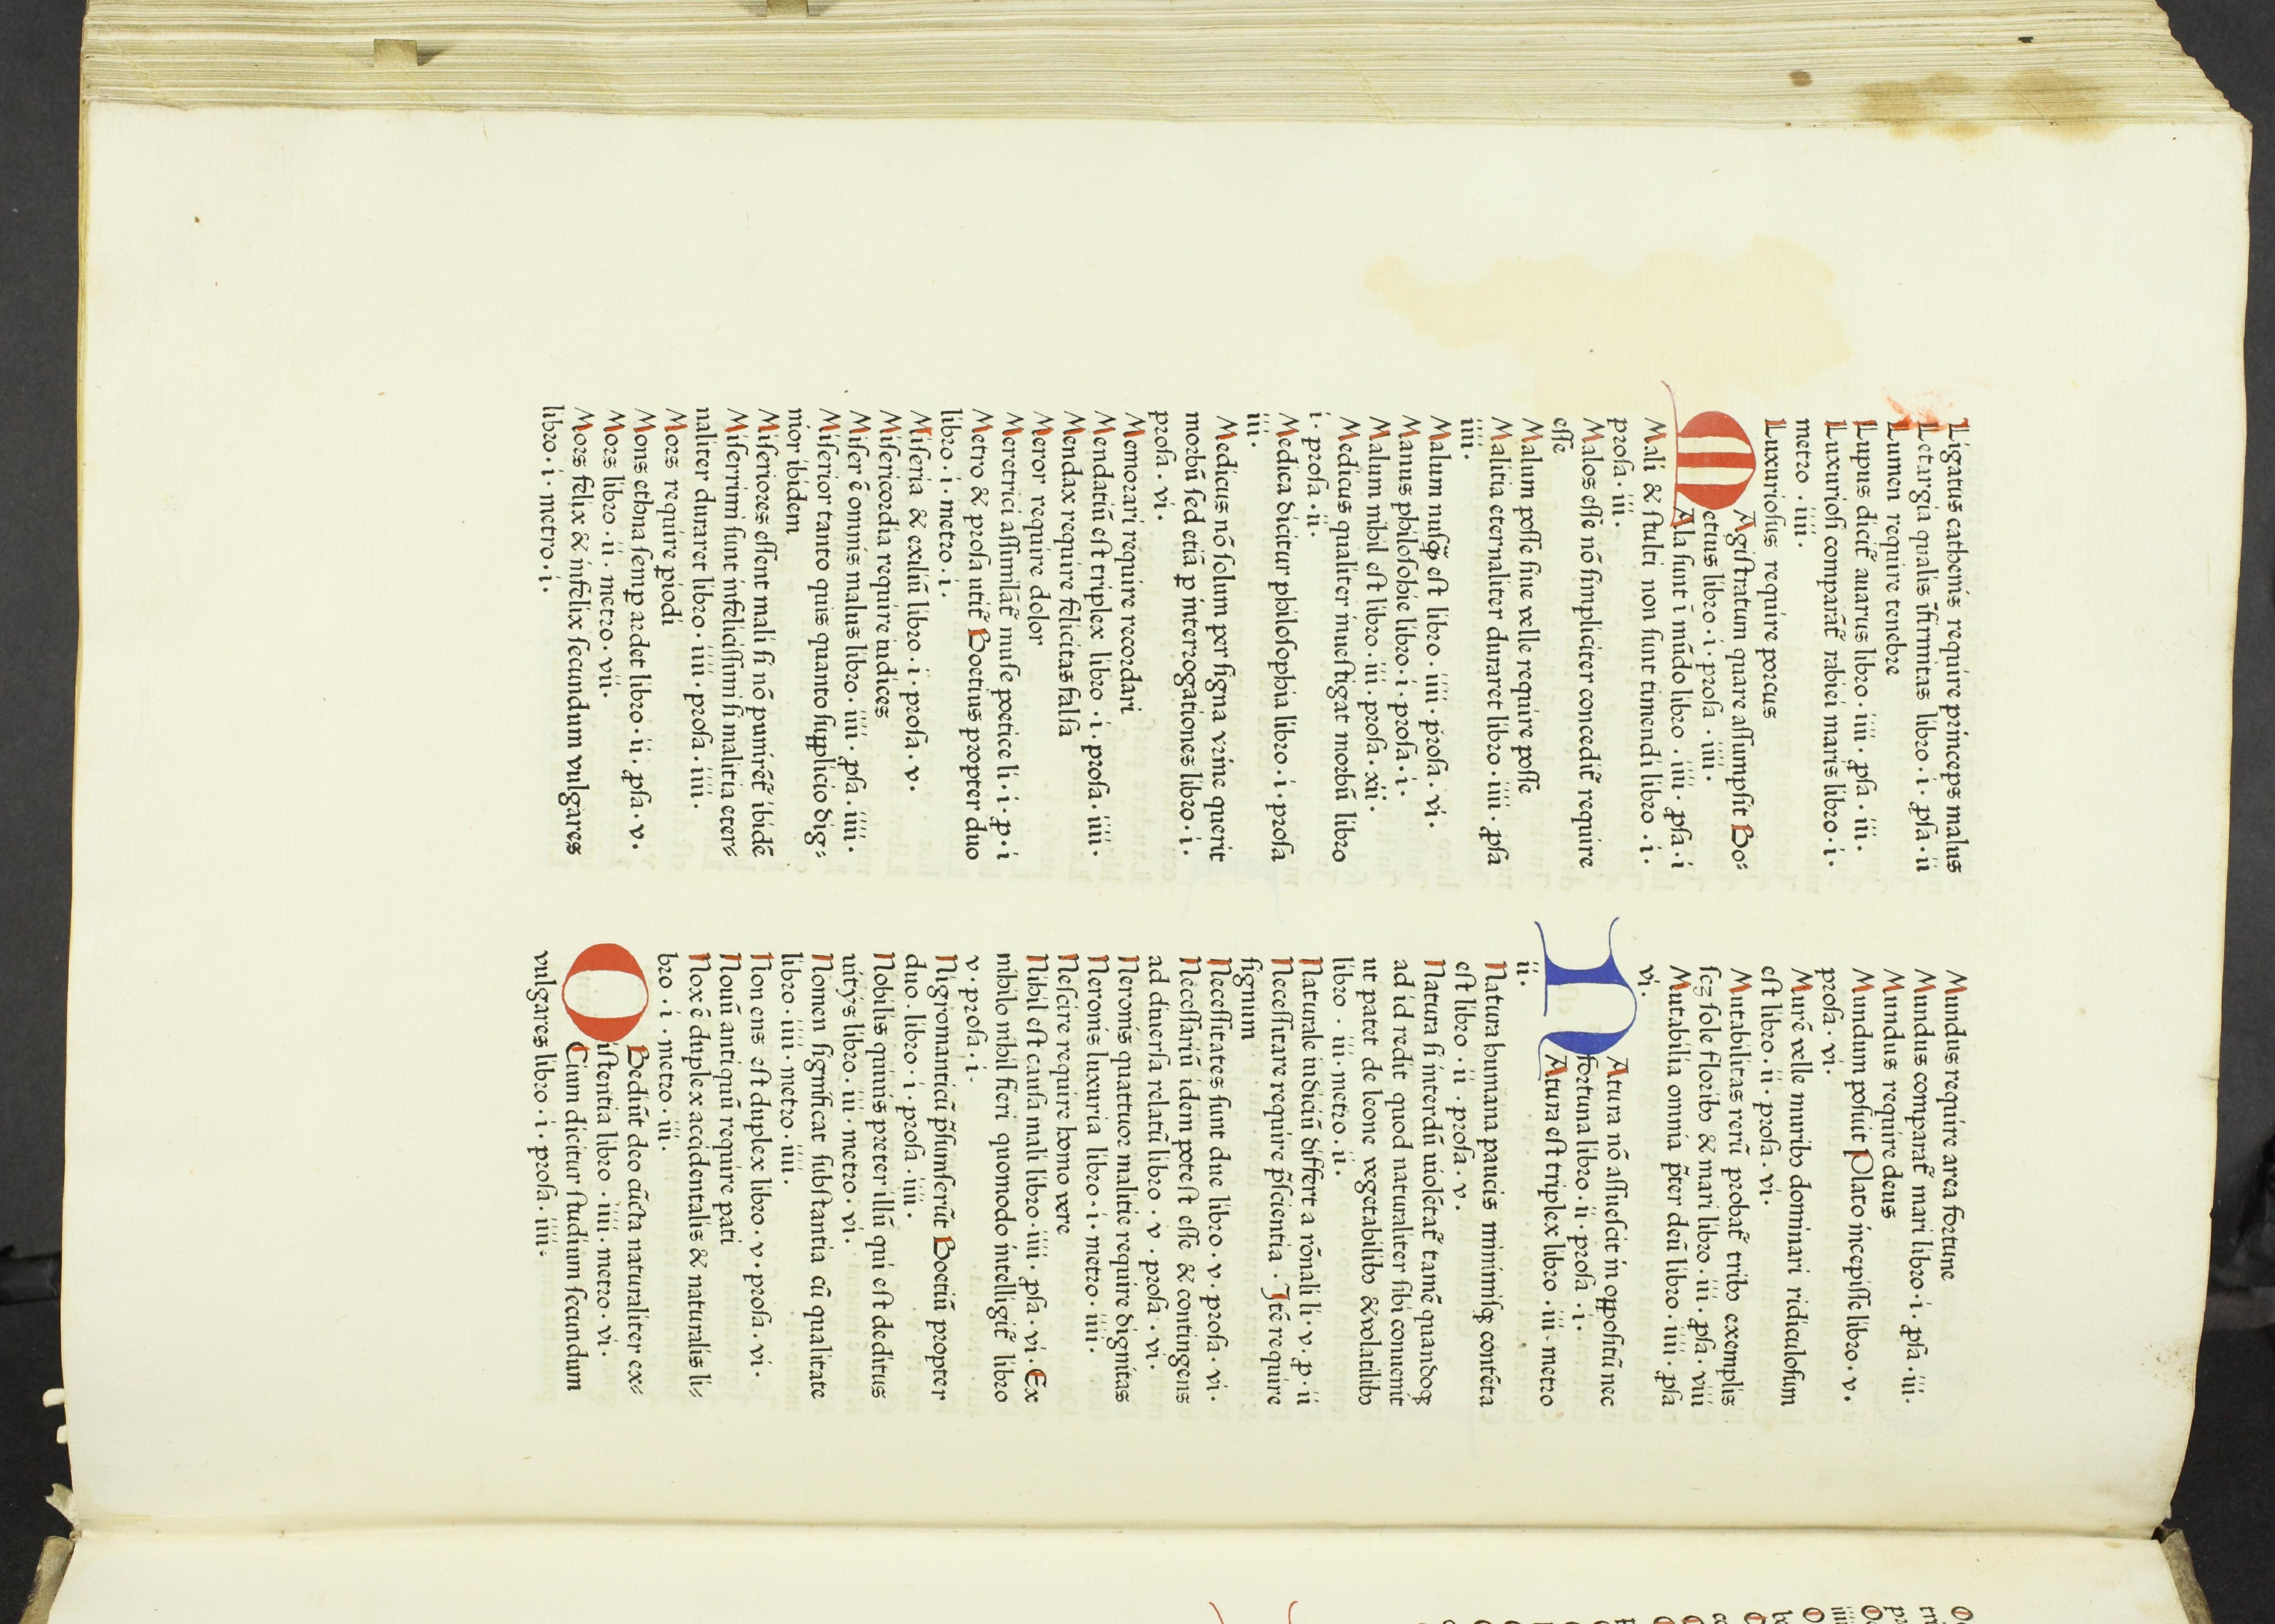 Ligatus cathenis require princeps malus
Letargia qualis ĩfirmitas libro · i · ꝓſa · ii
Lumen require tenebre
Lupus dicit᷑ auarus libro · iiii · ꝓſa · iii ·
Luxurioſi comparãt᷑ rabiei maris libro · i ·
metro · iiii ·
Luxurioſus require porcus
MAgiſtratum quare aſſumpſit Bo⸗
etius libro · i · proſa · iiii ·
Ala ſunt ĩ mũdo libro · iiii · ꝓſa · i
Mali & ſtulti non ſunt timendi libro · i ·
proſa · iii ·
Malos eſſe nõ ſimpliciter concedit᷑ require
eſſe
Malum poſſe ſiue velle require poſſe
Malitia eternaliter duraret libro · iiii · ꝓſa
iiii ·
Malum nuſꝙ̃ eſt libro · iiii · proſa · vi ·
Manus philoſohie libro · i · proſa · i ·
Malum nihil eſt libro · iii · proſa · xii ·
Medicus qualiter inueſtigat morbũ libro
i · proſa · ii ·
Medica dicitur philoſophia libro · i · proſa
iii ·
Medicus nõ ſolum per ſigna vrine querit
morbũ ſed etiã ꝑ interrogationes libro · i ·
proſa · vi ·
Memorari require recordari
Mendatiũ eſt triplex libro · i · proſa · iiii ·
Mendax require felicitas falſa
Meror require dolor
Meretrici aſſimilãt᷑ muſe poetice li · i · p · i
Metro & proſa utit᷑ Boetius propter duo
libro · i · metro · i ·
Miſeria & exiliũ libro · i · proſa · v ·
Miſericordia require iudices
Miſer ẽ omnis malus libro · iiii · ꝓſa · iiii ·
Miſerior tanto quis quanto ſupplicio dig⸗
nior ibidem
Miſeriores eſſent mali ſi nõ punirẽt᷑ ibidẽ
Miſerrimi ſunt infeliciſſimi ſi malitia eter⸗
naliter duraret libro · iiii · proſa · iiii ·
Mors require piodi
Mons ethna ſemꝑ ardet libro · ii · ꝓſa · v ·
Mors libro · ii · metro · vii ·
Mors felix & infelix ſecundum vulgares
libro · i · metro · i ·
Mundus require area fortune
Mundus comparat᷑ mari libro · i · ꝓſa · iii ·
Mundus require deus
Mundum poſuit Plato incepiſſe libro · v ·
proſa · vi ·
Murẽ velle muribꝰ dominari ridiculoſum
eſt libro · ii · proſa · vi ·
Mutabilitas rerũ probat᷑ tribꝰ exemplis
ſcꝫ ſole floribꝰ & mari libro · iii · ꝓſa · viii
Mutabilia omnia p̃ter deũ libro · iiii · ꝓſa
vi ·
NAtura nõ aſſueſcit in oppoſitũ nec
fortuna libro · ii · proſa · i ·
Atura eſt triplex libro · iii · metro
ii ·
Natura humana paucis minimiſꝗ contẽta
eſt libro · ii · proſa · v ·
Natura ſi interdũ uiolẽtat᷑ tamẽ quandoꝗ
ad id redit quod naturaliter ſibi conuenit
ut patet de leone vegetabilibꝰ & volatilibꝰ
libro · iii · metro · ii ·
Naturale iudiciũ differt a rõnali li · v · p · ii
Neceſſitare require p̃ſcientia · Itẽ require
ſignum
Neceſſitates ſunt due libro · v · proſa · vi ·
Neceſſariũ idem poteſt eſſe & contingens
ad diuerſa relatũ libro · v · proſa · vi ·
Neronis quattuor malitie require dignitas
Neronis luxuria libro · i · metro · iiii ·
Neſcire require homo vere
Nihil eſt cauſa mali libro · iiii · ꝓſa · vi · Ex
nihilo nihil fieri quomodo intelligit᷑ libro
v · proſa · i ·
Nigromanticũ p̃ſumſerũt Boetiũ propter
duo · libro · i · proſa · iiii ·
Nobilis quinis preter illũ qui eſt deditus
uitijs libro · iii · metro · vi ·
Nomen ſignificat ſubſtantia cũ qualitate
libro · iiii · metro · iiii ·
Non ens eſt duplex libro · v · proſa · vi ·
Nouũ antiquũ require pati
Nox ẽ duplex accidentalis & naturalis li⸗
bro · i · metro · iii ·
OBediũt deo cũcta naturaliter ex⸗
iſtentia libro · iiii · metro · vi ·
Cium dicitur ſtudium ſecundum
vulgares libro · i · proſa · iiii ·